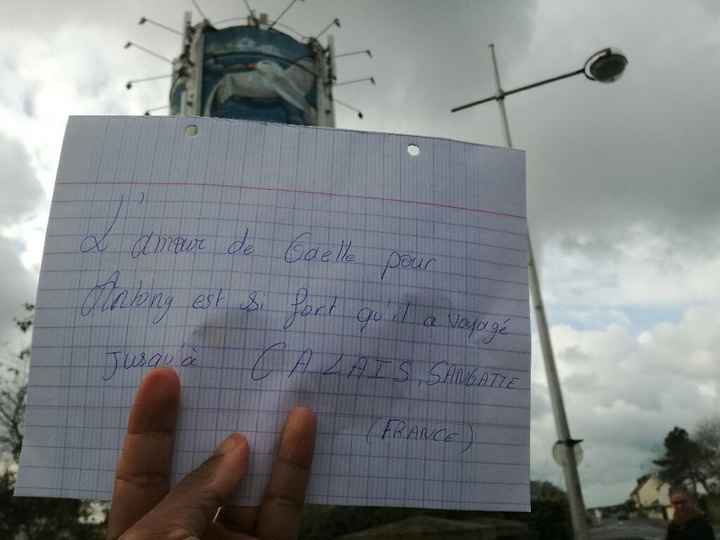 L'amour de Gaelle pour
Antony est si fort qu'il a voyagé
jusqu'à CALAIS, SANGATTE
(FRANCE)